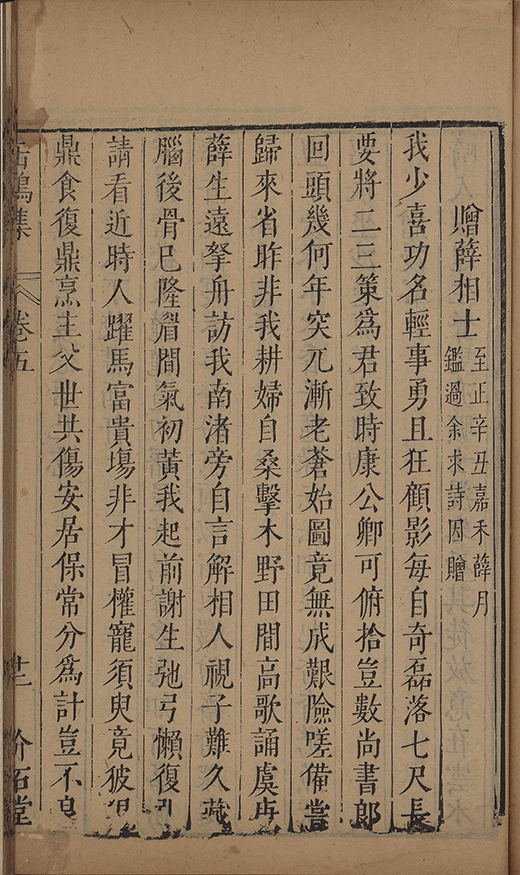 贈薛相士
至正辛丑嘉禾薛月
鑑過余求詩因贈
我少喜功名輕事勇且狂顧影每自奇磊落七尺長
要將二三策爲君致時康公卿可俯拾豈數尚書郎
回頭幾何年突兀漸老蒼始圖竟無成艱險嗟備嘗
歸來省昨非我耕婦自桑擊木野田間高歌誦虞唐
薛生遠拏舟訪我南渚旁自言解相人視子難久藏
腦後骨已隆眉間氣初黃我起前謝生弛弓懶復引
請看近時人躍馬富貴塲非才冒權寵須臾竟披
鼎食復鼎烹主父世共傷安居保常分爲計豈不良
鳴集
卷五
廿二
介石堂